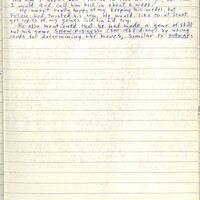 I would and call him back in about a week.
He wasn't really happy at my keeping his model, but
Felicia had twisted his arm. He would like to at least
get copies of my games. Said I'd try.
He also mentioned that he had made a game of skill
out his game SHOW BUSINESS (see 1968 diary) by using
cards for determining the moves, similar to